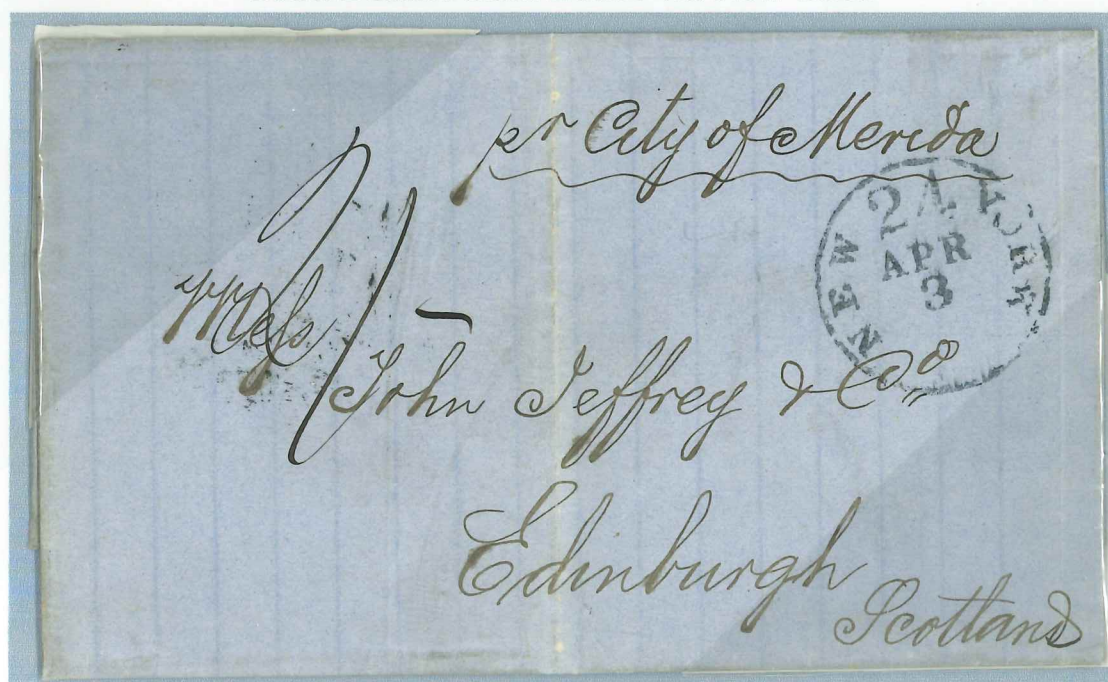 pr City of Merida
NEW YORK
24
APR
3
Mess
John Jeffrey & Co
Edinburgh
Scotland